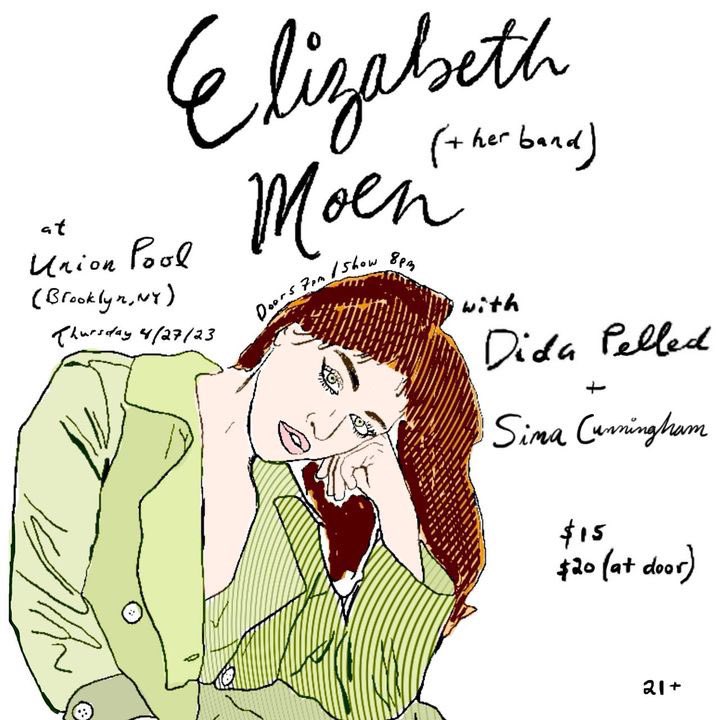 Elizabeth
(+ her band)
Moen
at
Union Pool
(Brooklyn, NY)
Thursday 4/27/23
Doors 7pm / Show 8pm
with
Dida Pelled
+
Sima Cunningham
$15
$20 (at door)
21+